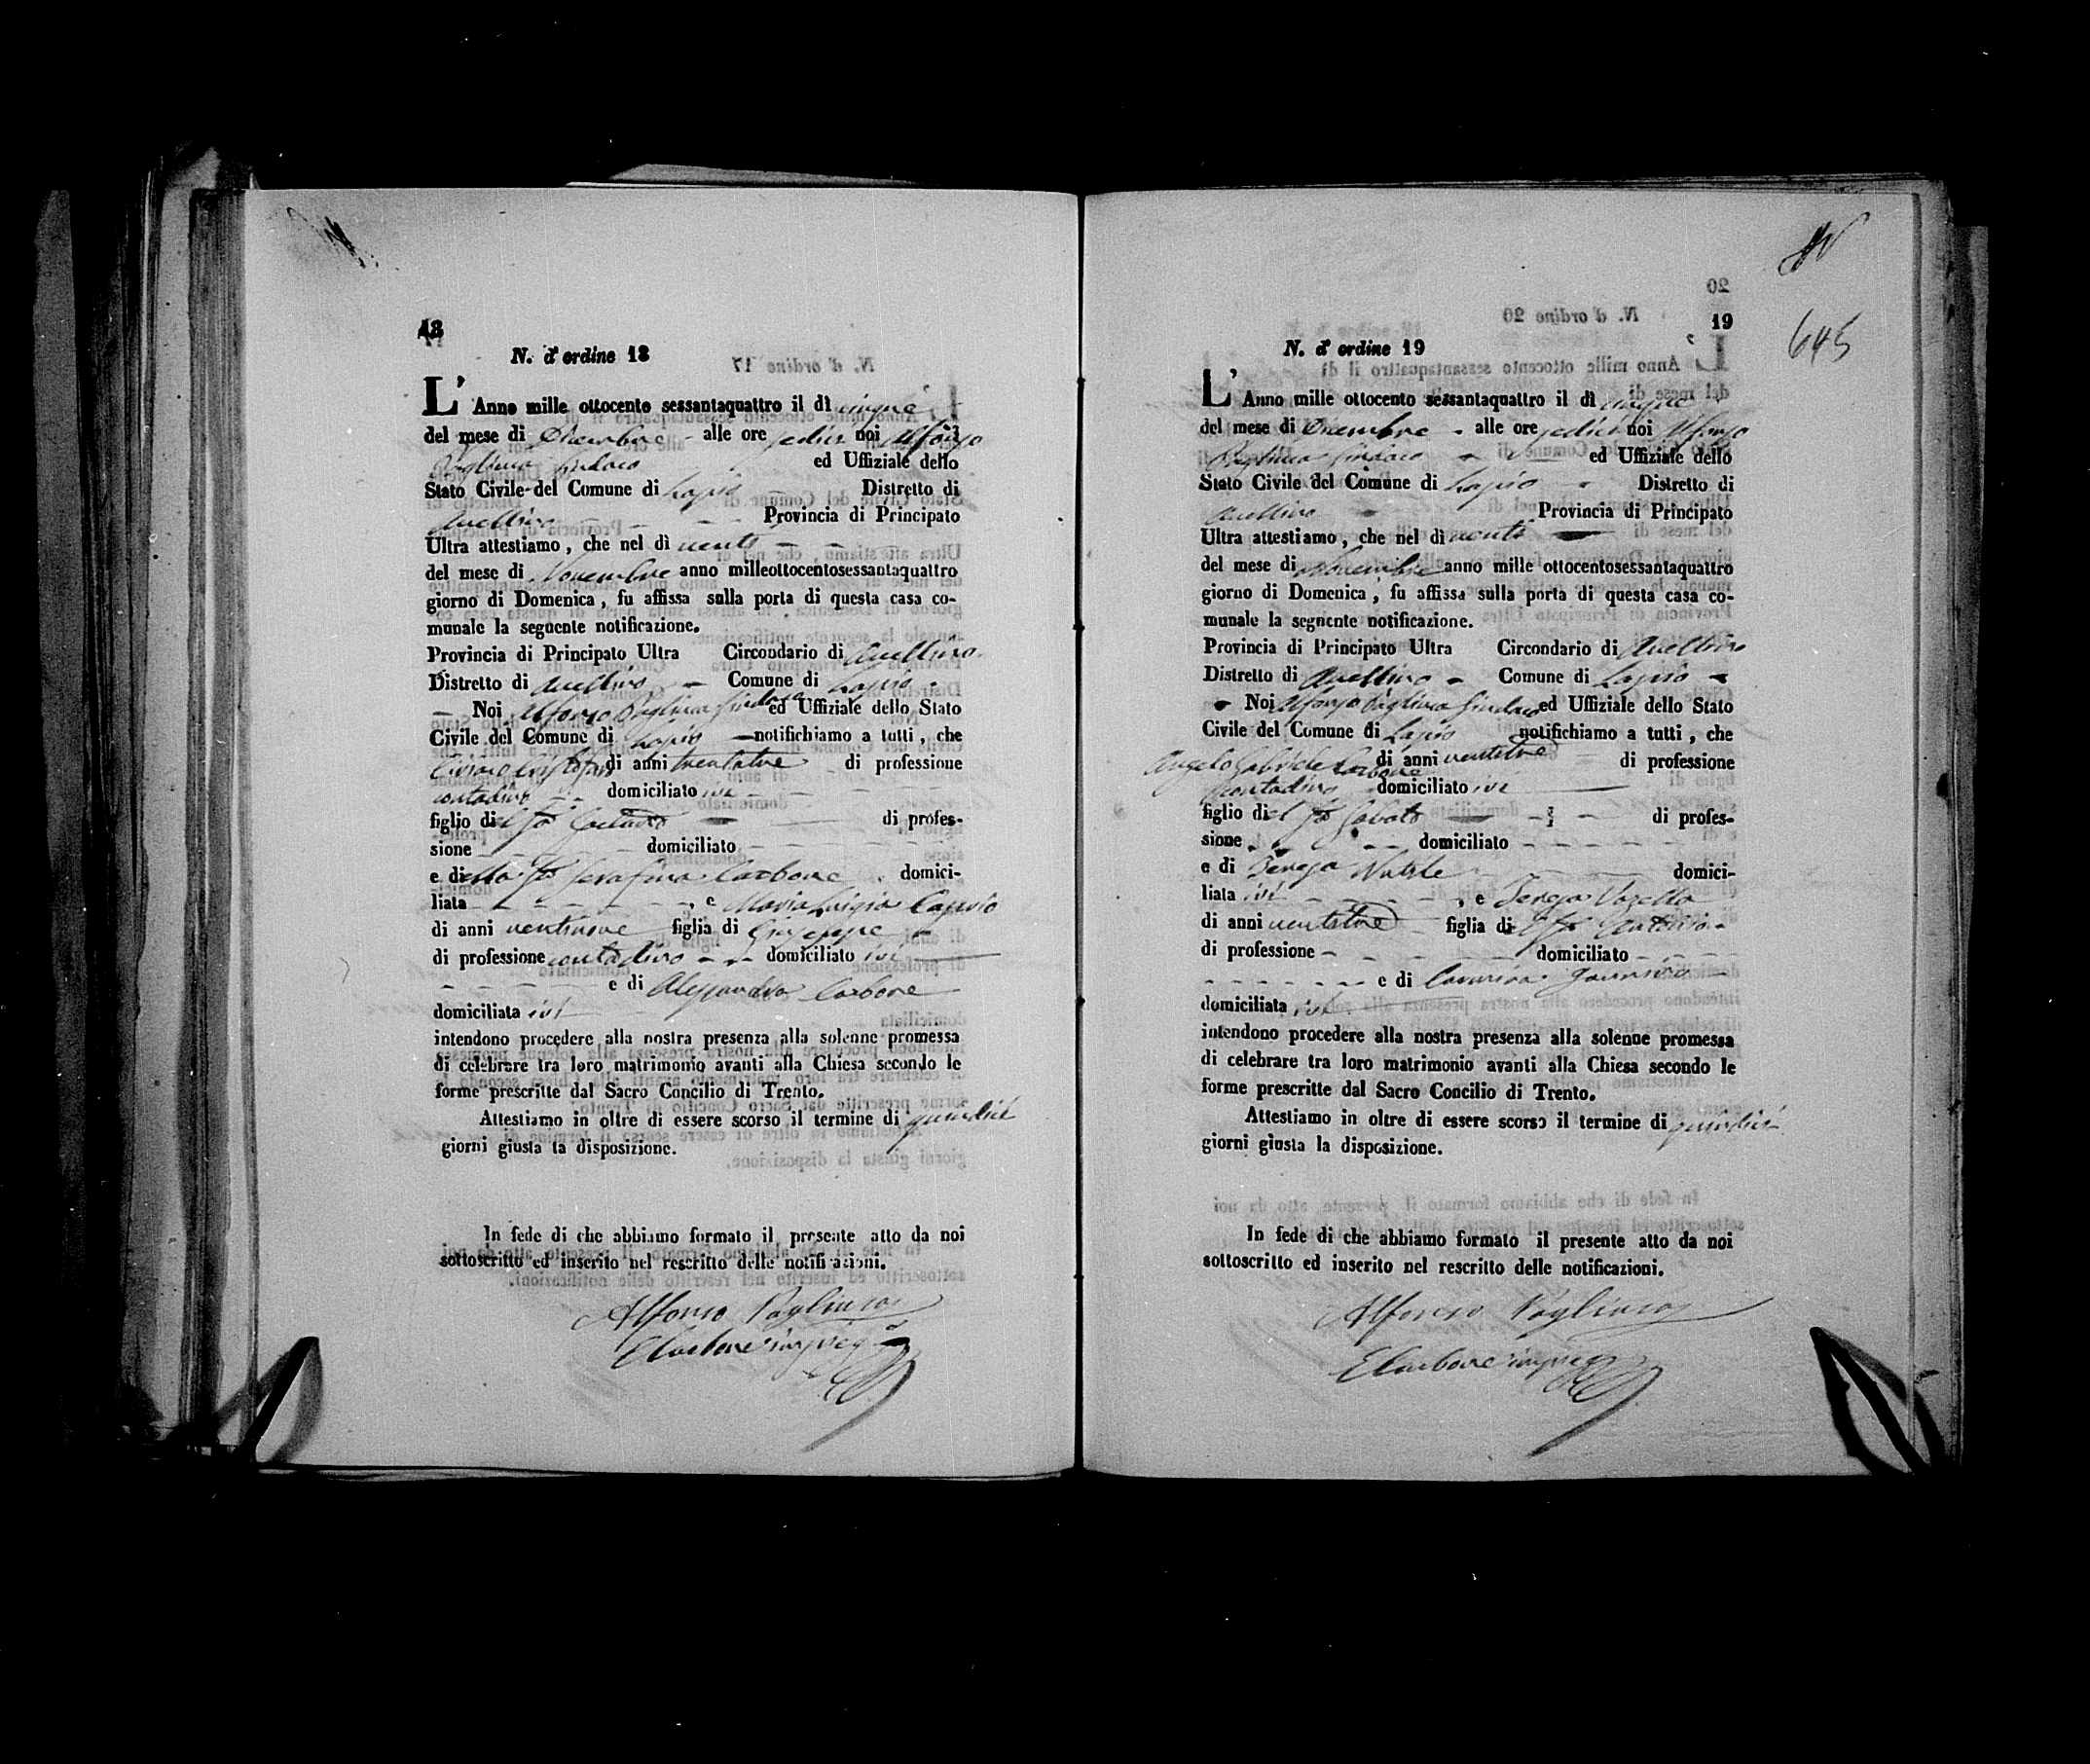 18
N. d' ordine 18
L' Anno mille ottocento sessantaquattro il dì cinque
del mese di Dicembre - alle ore sedici noi Alfonso
Pagliuca Sindaco ed Uffiziale dello
Stato Civile del Comune di Lapio - Distretto di
Avellino - - - Provincia di Principato
Ultra attestiamo, che nel dì venti - -
del mese di Novembre anno milleottocentosessantaquattro
giorno di Domenica, fu affissa sulla porta di questa casa co-
munale la seguente notificazione.
Provincia di Principato Ultra Circondario di Avellino
Distretto di Avellino - Comune di Lapio -
- Noi Alfonso Pagliuca Sindaco ed Uffiziale dello Stato
Civile del Comune di Lapio - notifichiamo a tutti, che
di anni trentatre di professione
contadino - - domiciliato ivi - - - -
figlio di Gaetano - di profes-
sione - - - domiciliato - - - -
e di Serafina Carbone domici-
liata - - - - - -, e Maria Luigia Caprio
di anni ventinove figlia di Giuseppe -
di professione contadino - - - domiciliato ivi
- - - - - - e di Alessandra Carbone
domiciliata ivi
intendono procedere alla nostra presenza alla solenne promessa
di celebrare tra loro matrimonio avanti alla Chiesa secondo le
forme prescritte dal Sacro Concilio di Trento.
Attestiamo in oltre di essere scorso il termine di quindici
giorni giusta la disposizione.
In fede di che abbiamo formato il presente atto da noi
sottoscritto ed inserito nel rescritto delle notificazioni.
Alfonso Pagliuca
E Carbone
645
19
N. d' ordine 19
L' Anno mille ottocento sessantaquattro il dì cinque
del mese di Dicembre - alle ore sedici noi Alfonso
Pagliuca Sindaco - - ed Uffiziale dello
Stato Civile del Comune di Lapio - Distretto di
Avellino - Provincia di Principato
Ultra attestiamo, che nel dì venti -
del mese di Novembre anno mille ottocentosessantaquattro
giorno di Domenica, fu affissa sulla porta di questa casa co-
munale la segnente notificazione.
Provincia di Principato Ultra Circondario di Avellino
Distretto di Avellino - Comune di Lapio -
- Noi Alfonso Pagliuca Sindaco ed Uffiziale dello Stato
Civile del Comune di Lapio notifichiamo a tutti, che
Angelo Gabriele Carbone di anni ventitre di professione
contadino domiciliato ivi
figlio di Sabato - - - di profes-
sione - - - domiciliato - - - -
e di Teresa domici-
liata ivi - - - - -, e Teresa
di anni ventitre figlia di Antonio -
di professione - - domiciliato - - - -
- - - - - - e di
domiciliata ivi
intendono procedere alla nostra presenza alla solenne promessa
di celebrare tra loro matrimonio avanti alla Chiesa secondo le
forme prescritte dal Sacro Concilio di Trento.
Attestiamo in oltre di essere scorso il termine di quindici
giorni giusta la disposizione.
In fede di che abbiamo formato il presente atto da noi
sottoscritto ed inserito nel rescritto delle notificazioni.
Alfonso Pagliuca
E Carbone